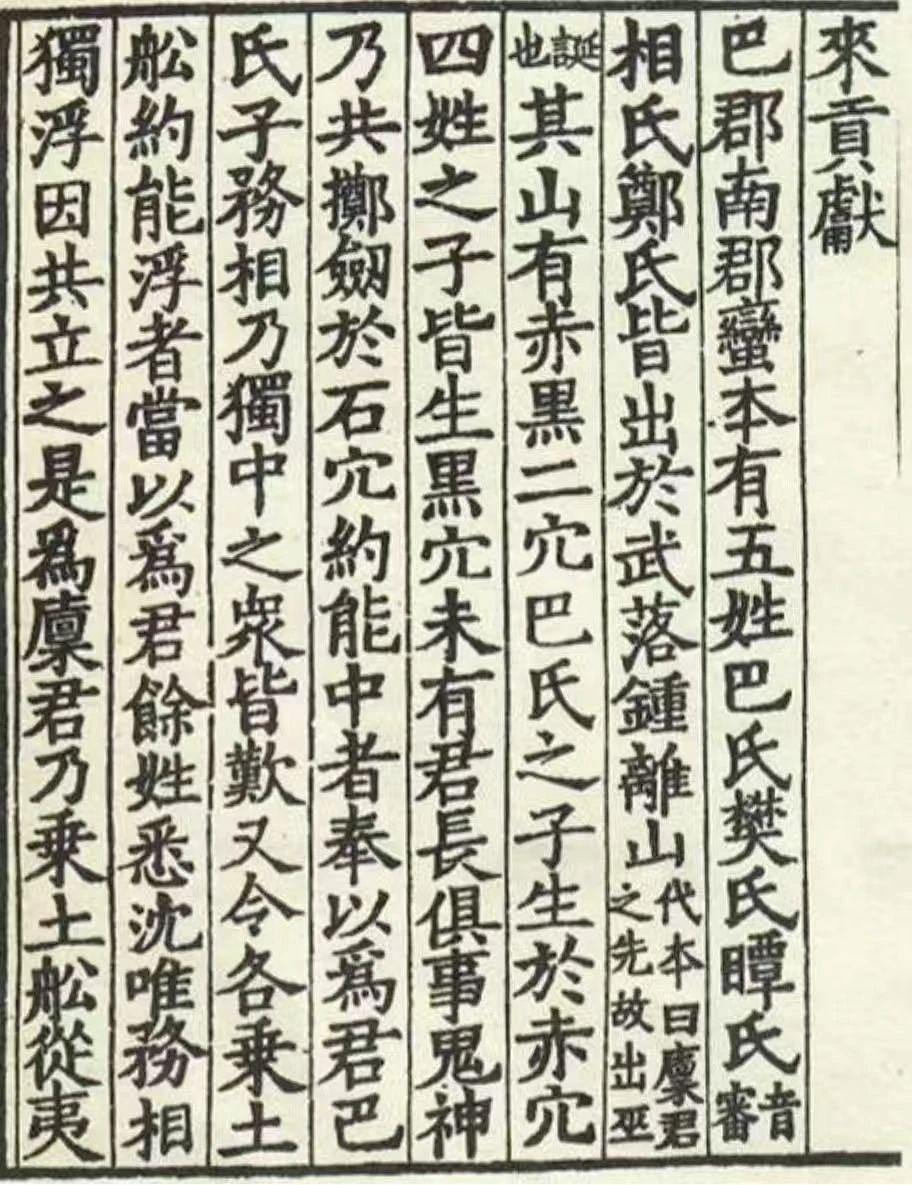 來貢獻
巴郡南郡蠻本有五姓巴氏樊氏瞫氏音審
相氏鄭氏皆出於武落鍾離山代本曰廩君之先故出巫
誕也其山有赤黑二穴巴氏之子生於赤穴
四姓之子皆生黑穴未有君長俱事鬼神
乃共擲劒於石穴約能中者奉以爲君巴
氏子務相乃獨中之衆皆歎又令各乗土
舩約能浮者當以爲君餘姓悉沈唯務相
獨浮因共立之是爲廩君乃乗土舩從夷